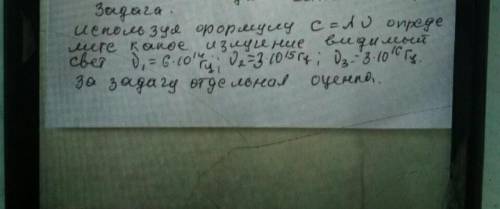 Задага.
Используя формулу c = λυ опреде
лите какое излучение видимый
свет υ₁ = 6·10¹⁴ Гц; υ₂ = 3·10¹⁵ Гц; υ₃ = 3·10¹⁶ Гц.
За задагу отдельная оценка.